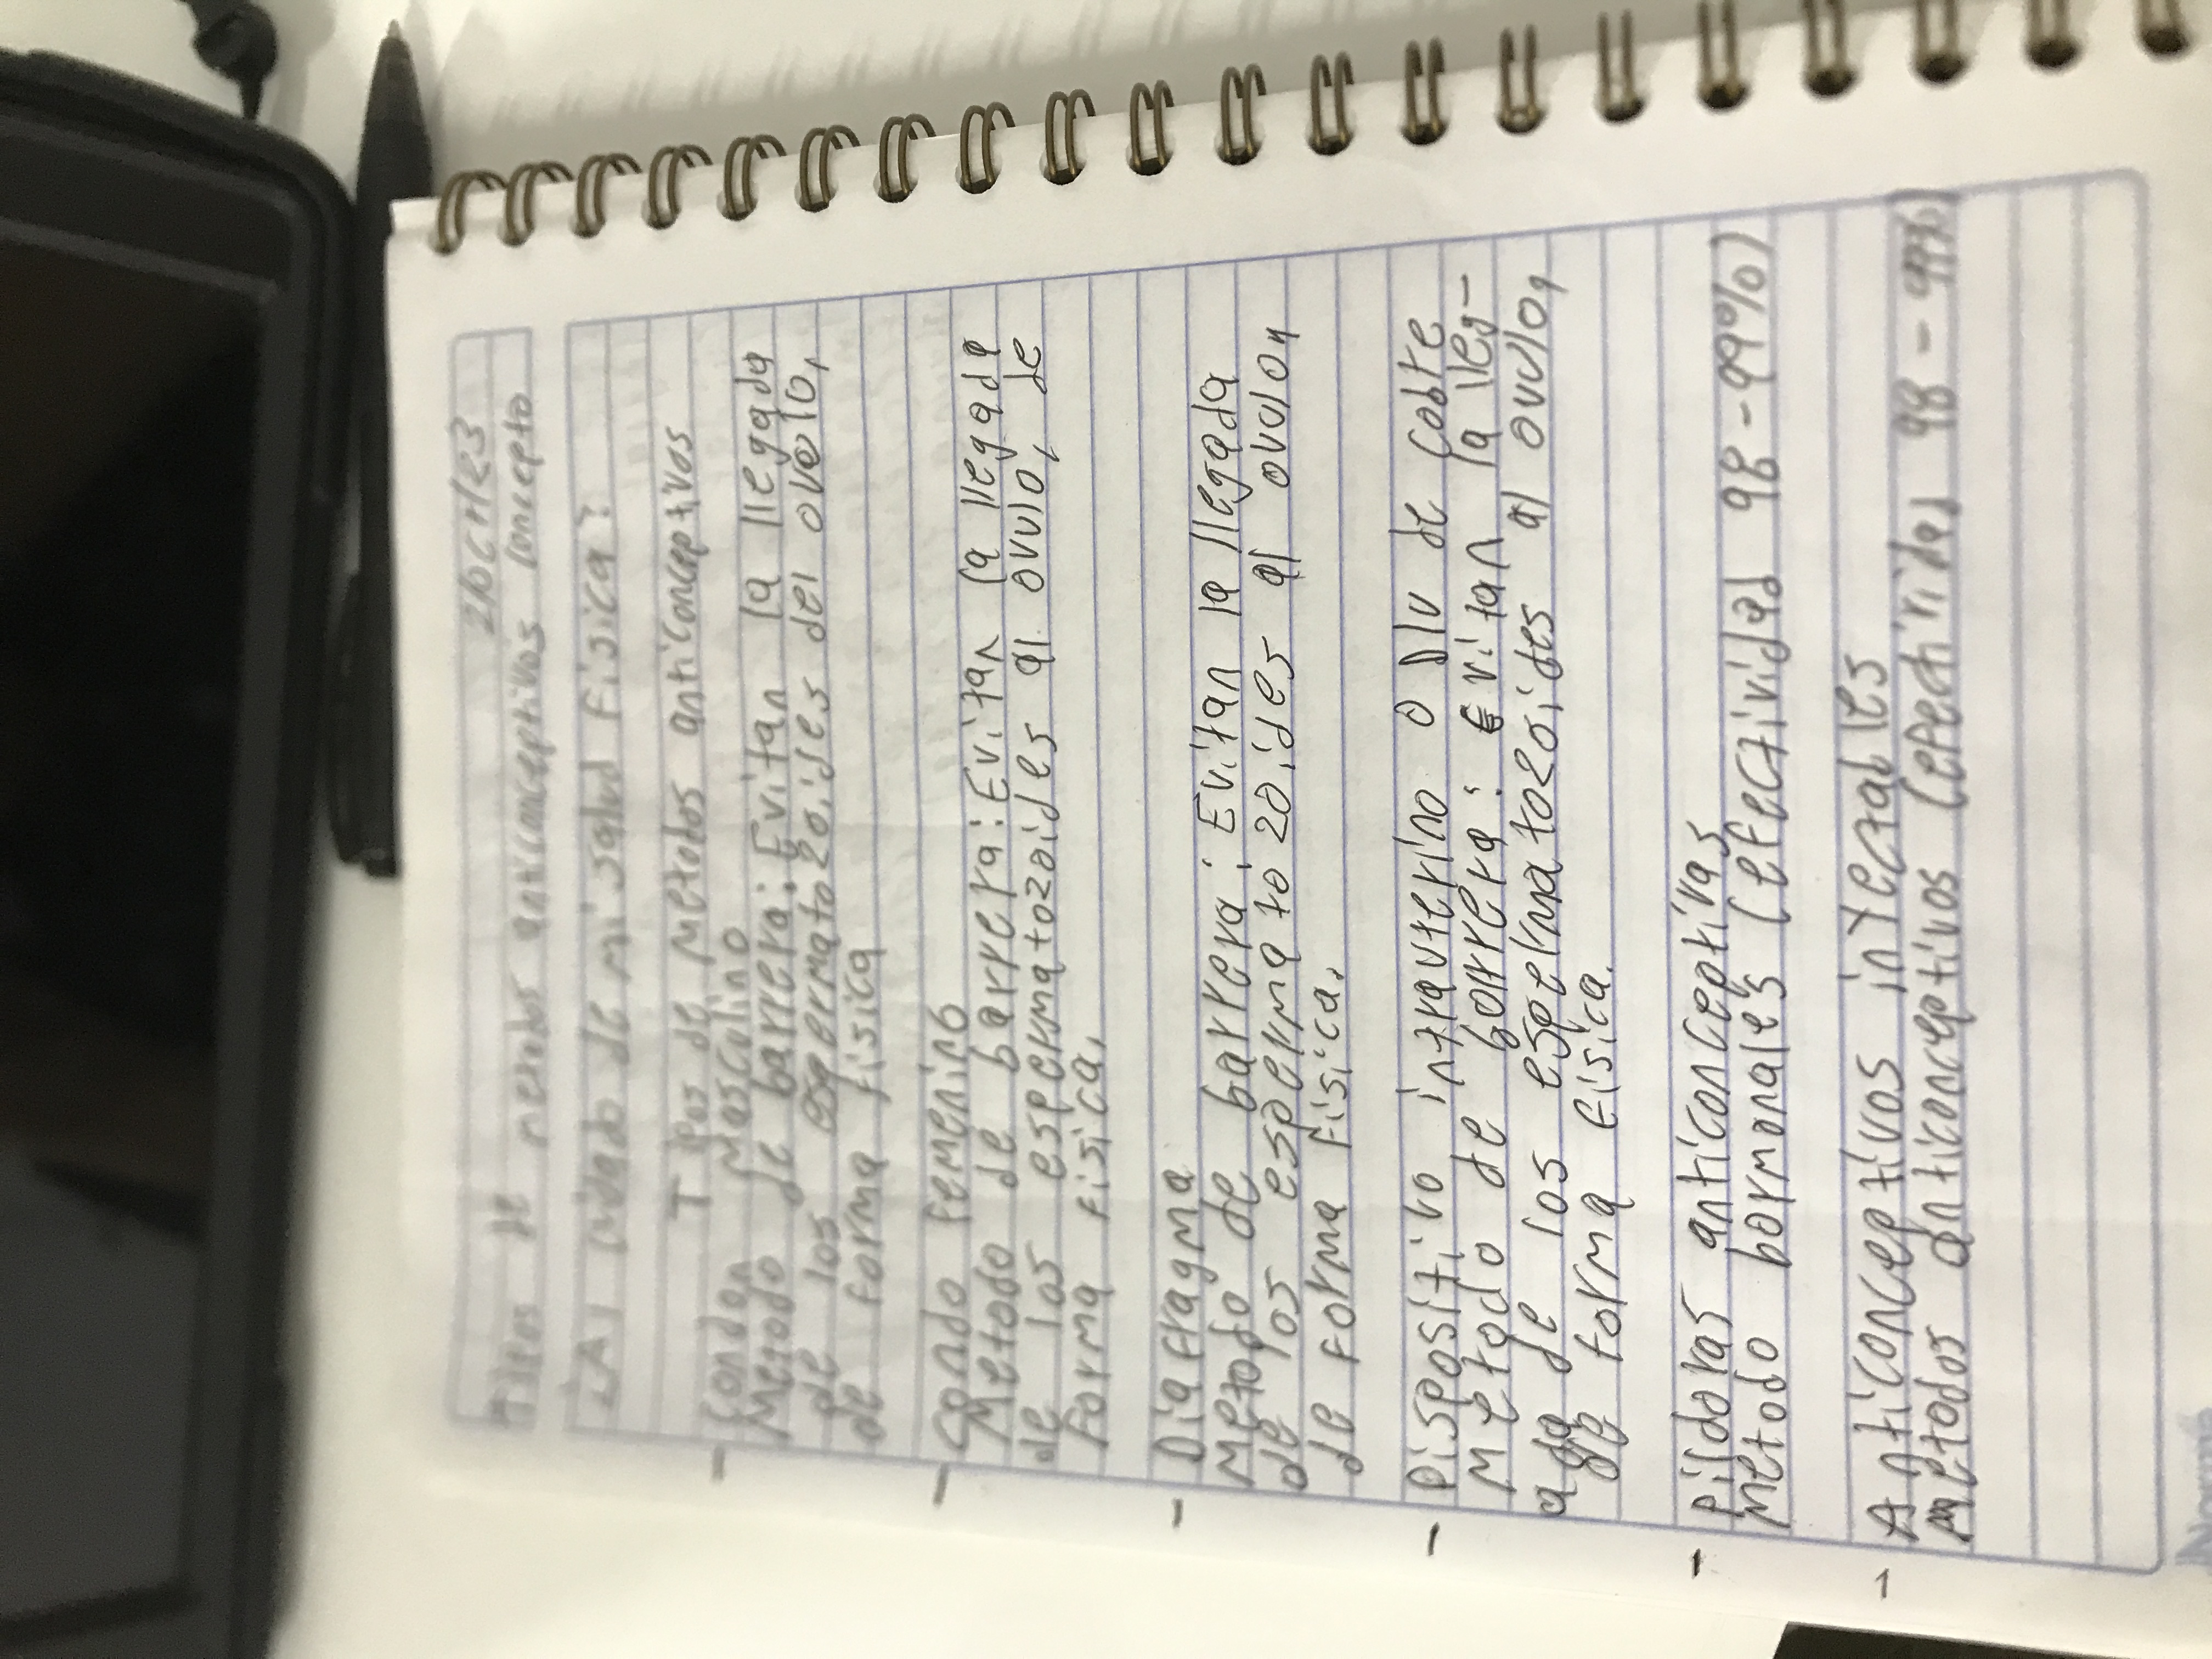 2/Oct/23
Tipos de metodos anticonceptivos concepto
de mi salud Fisica?
Tipos de Metodos anticonceptivos
- Condon Masculino
Metodo de barrera: Evitan la llegada
de los espermatozoides del ovulo,
de forma fisica
- Condo femenino
Metodo de barrera: Evitan la llegada
de los espermatozoides al ovulo, de
forma fisica.
- Diafragma
Metodo de barrera: Evitan la llegada
de los espermatozoides al ovulo,
de forma fisica.
- Dispositivo intrauterino o DIU de cobre
Metodo de barrera: Evitan la lleg-
ada de los espermatozoides al ovulo,
de forma fisica.
- Pildoras anticonceptivas
metodo hormonales (efectividad 98-99%)
- Anticonceptivos inyectables
Metodos anticonceptivos (efectividad 98-99%)